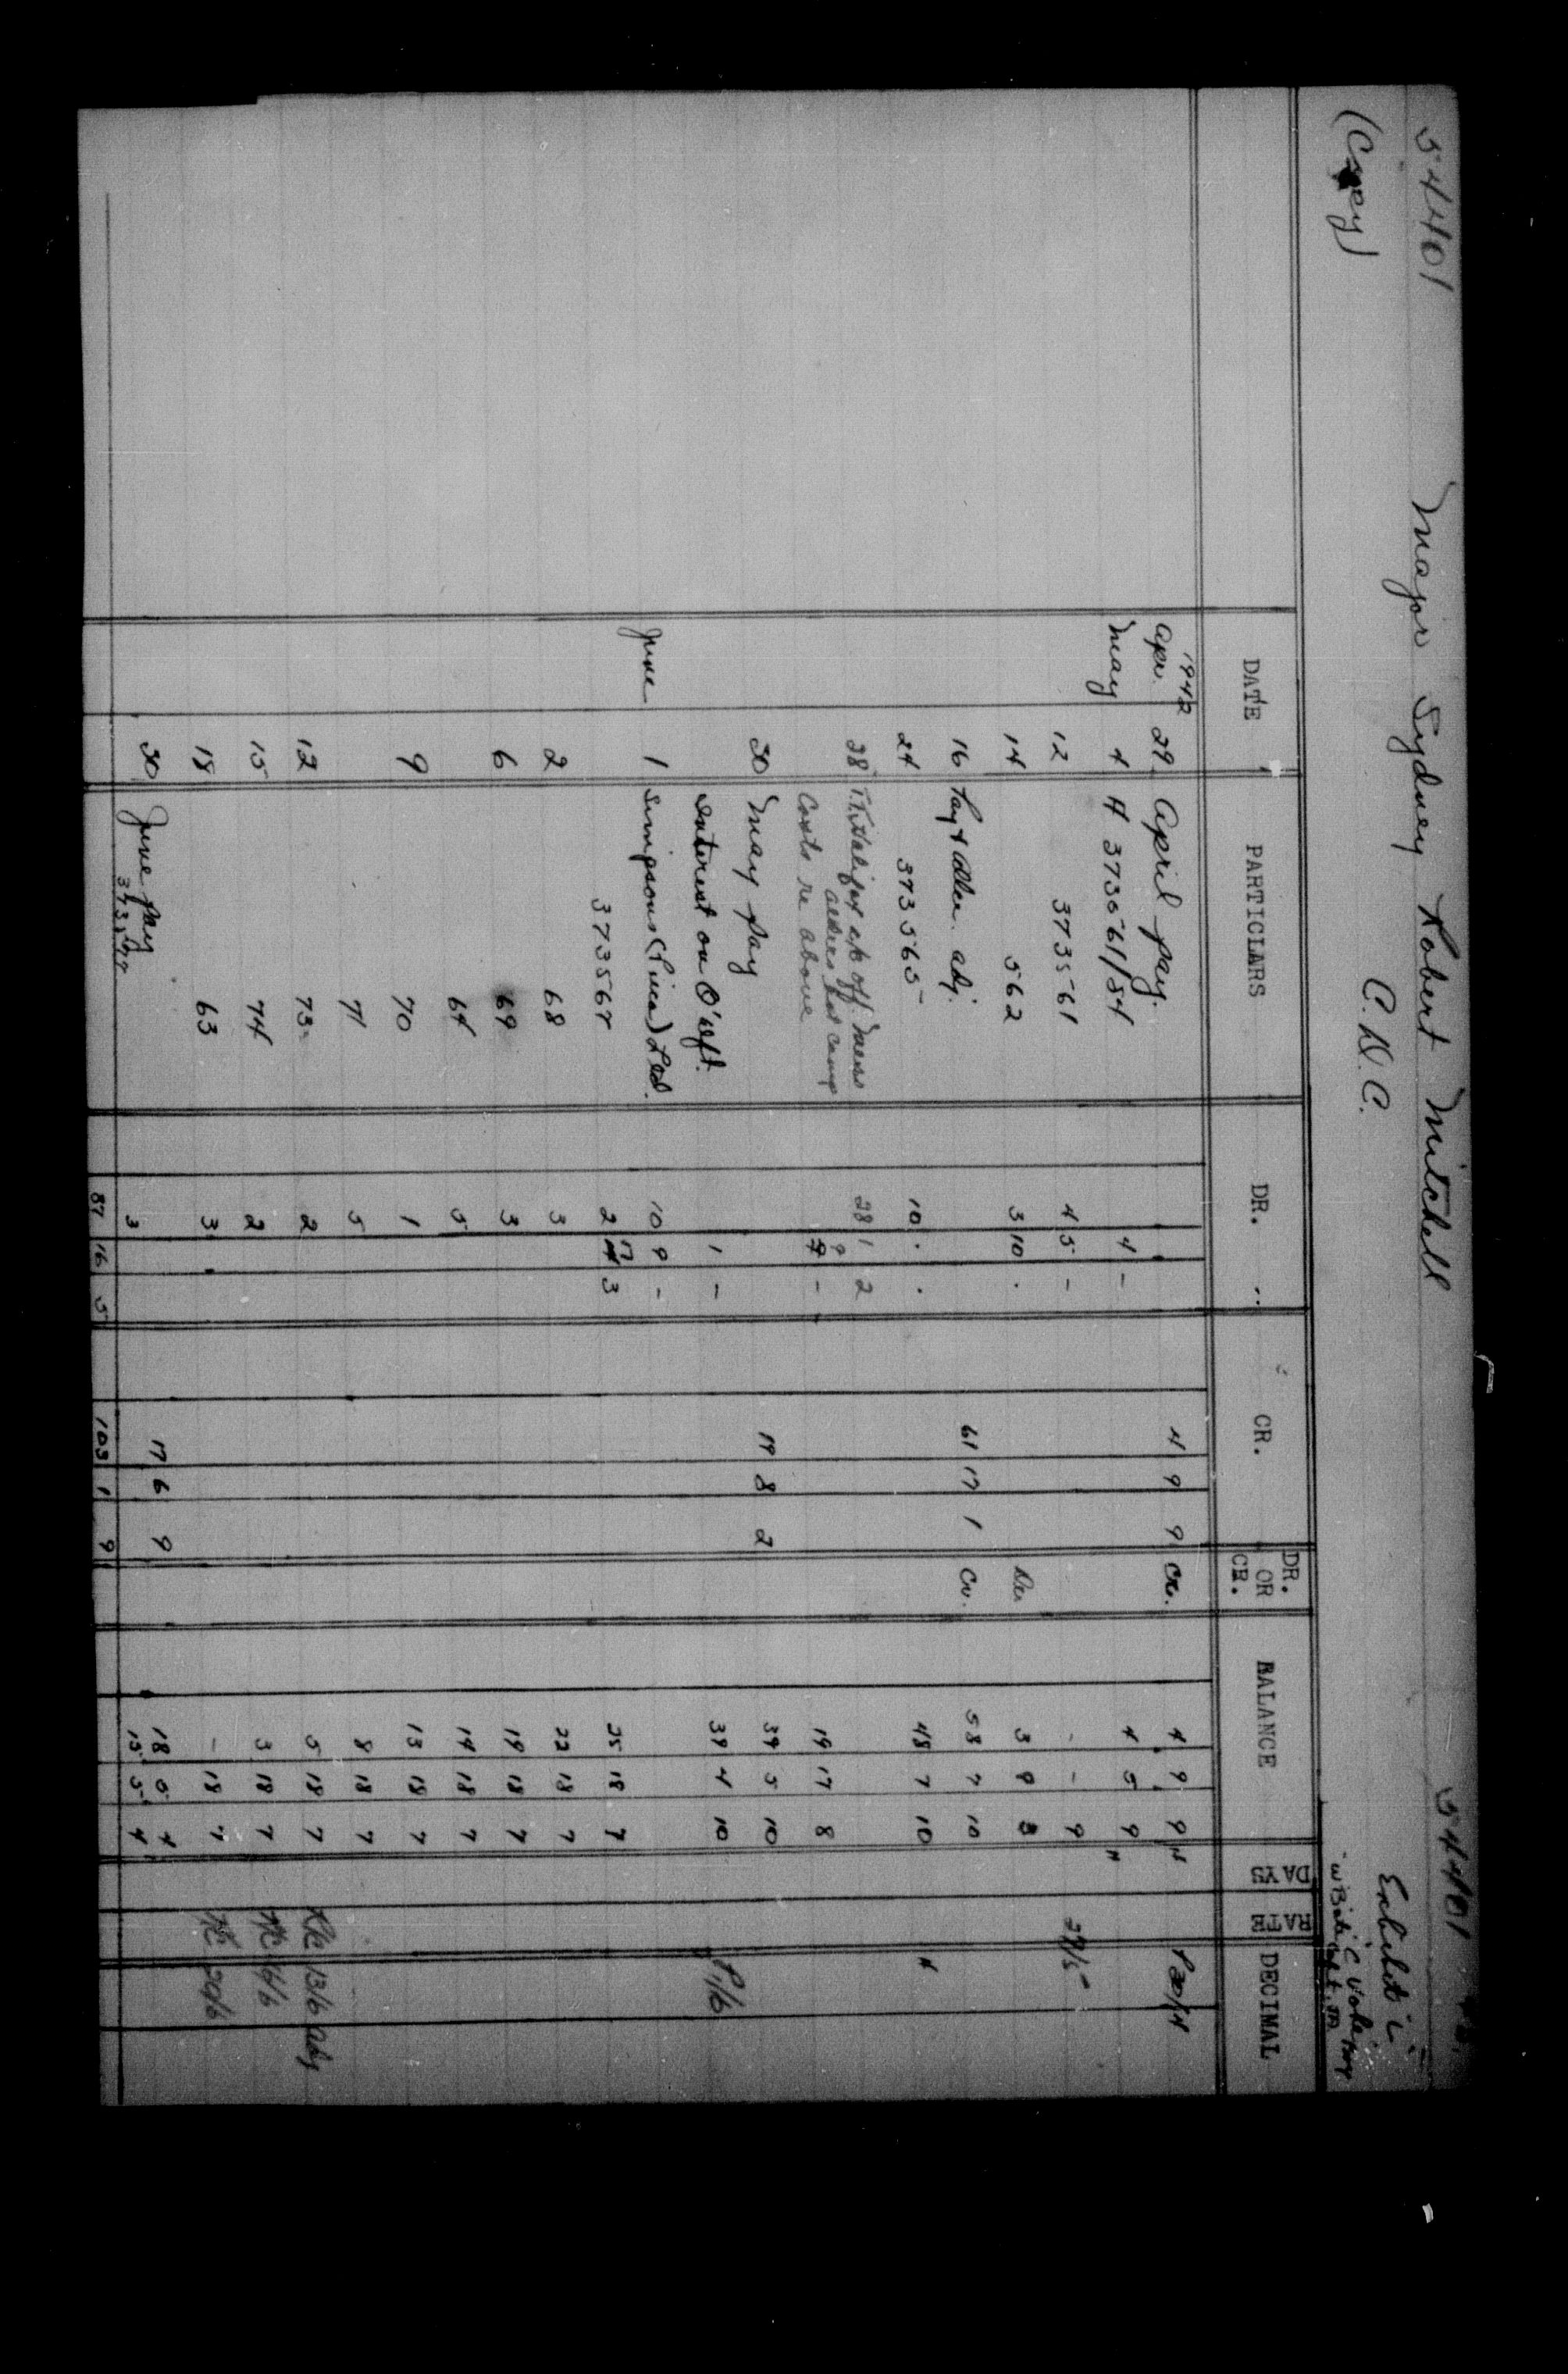 54401 Major Sydney Robert Mitchell 54401
(Copy) C.D.C. Exhibit "L"
DATE PARTICLARS DR. CR. DR. OR CR. BALANCE DAYS RATE DECIMAL
1942
Apr. 29 April pay. 4 9 9 Cr. 4 9 9
May 4 # 373561/54 4 - 4 5 9
12 373561 4 5 - - - 9 29/5
14 562 3 10 . Dr 3 9 3
16 Pay & Allce. adj. 61 17 1 Cr. 58 7 10
24 373565 10 . . 48 7 10
28 28 1 2
Costs re above 9 - 19 17 8
30 May pay 19 8 2 39 5 10
Interest on O'dft. 1 - 39 4 10 1/6
June 1 Simpsons (Picc) Ltd. 10 9 -
373567 2 17 3 25 18 7
2 68 3 22 18 7
6 69 3 19 18 7
64 5 14 18 7
9 70 1 13 18 7
71 5 8 18 7
12 73 2 5 18 7 13/6
15 74 2 3 18 7 16/6
18 63 3 - 18 7 20/6
30 June pay 17 6 9 18 5 4
3 15 5 4
87 16 5 103 1 9